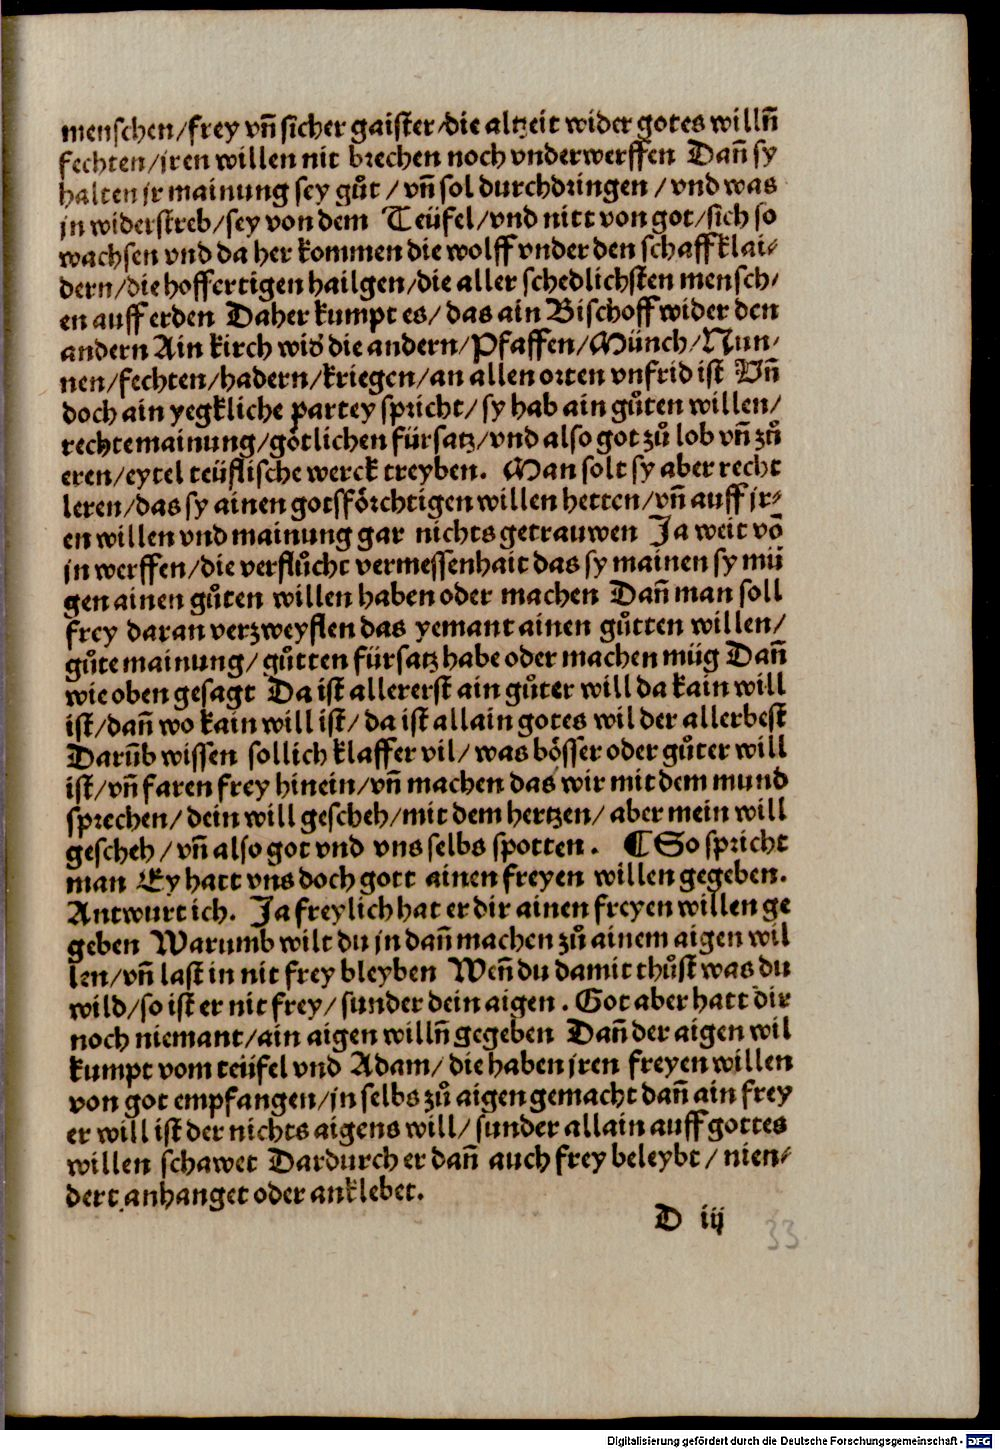 menschen/frey vñ sicher gaister/die altzeit wider gotes willñ
fechten/jren willen nit brechen noch vnderwerffen Dañ sy
halten jr mainung sey gůt/vñ sol durchdringen/vnd was
jn widerstreb/sey von dem Teüfel/vnd nitt von got/sich so
wachsen vnd da her kommen die wolff vnder den schaff klai⸗
dern/die hoffertigen hailgen/die aller schedlichsten mensch⸗
en auff erden Daher kumpt es/das ain Bischoff wider den
andern Ain kirch wid̕ die andern/Pfaffen/Münch/Nun⸗
nen/fechten/hadern/kriegen/an allen orten vnfrid ist Vñ
doch ain yegkliche partey spricht/sy hab ain gůten willen/
rechte mainung/götlichen fürsatz/vnd also got zů lob vñ zů
eren/eytel teüflische werck treyben. Man solt sy aber recht
leren/das sy ainen gotsförchtigen willen hetten/vñ auff jr⸗
en willen vnd mainung gar nichts getrauwen Ja weit võ
jn werffen/die verflůcht vermessenhait das sy mainen sy mü
gen ainen gůten willen haben oder machen Dañ man soll
frey daran verzweyflen das yemant ainen gůtten willen/
gůte mainung/gůtten fürsatz habe oder machen müg Dañ
wie oben gesagt Da ist allererst ain gůter will da kain will
ist/dañ wo kain will ist/da ist allain gotes wil der allerbest
Darũb wissen sollich klaffer vil/was bösser oder gůter will
ist/vñ faren frey hinein/vñ machen das wir mit dem mund
sprechen/dein will gescheh/mit dem hertzen/aber mein will
gescheh/vñ also got vnd vns selbs spotten. ¶So spricht
man Ey hatt vns doch gott ainen freyen willen gegeben.
Antwurt ich. Ja freylich hat er dir ainen freyen willen ge
geben Warumb wilt du jn dañ machen zů ainem aigen wil
len/vñ last in nit frey bleyben Weñ du damit thůst was du
wild/so ist er nit frey/sunder dein aigen. Got aber hatt dir
noch niemant/ain aigen willñ gegeben Dañ der aigen wil
kumpt vom teüfel vnd Adam/die haben jren freyen willen
von got empfangen/jn selbs zů aigen gemacht dañ ain frey
er will ist der nichts aigens will/sunder allain auff gottes
willen schawet Dardurch er dañ auch frey beleybt/nien⸗
dert anhanget oder anklebet.
D iij
33
Digitalisierung gefördert durch die Deutsche Forschungsgemeinschaft - DFG